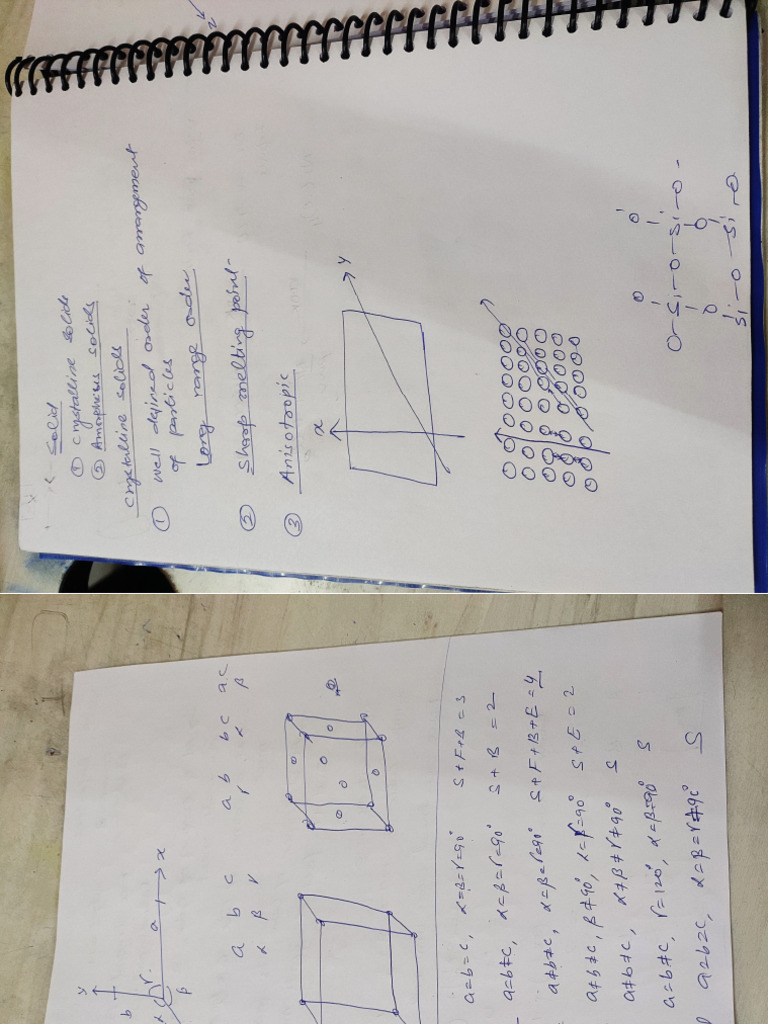 Solid
① Crystalline solids
② Amorphous solids
Crystalline solids
① Well defined order of arrangement
of particles
Long range order
② Sharp melting point-
③ Anisotropic
x
y
O O
O-Si-O-Si-O-
O O
Si-O-Si-O
y
b
α γ a x
β
a b c a b b c a c
α β γ γ α β
a=b=c, α=β=γ=90° S+F+B=3
a=b≠c, α=β=γ=90° S+B=2
a≠b≠c, α=β=γ=90° S+F+B+E=4
a≠b≠c, β≠90°, α=γ=90° S+E=2
a≠b≠c, α≠β≠γ≠90° S
a=b≠c, γ=120°, α=β=90° S
a=b=c, α=β=γ≠90° S